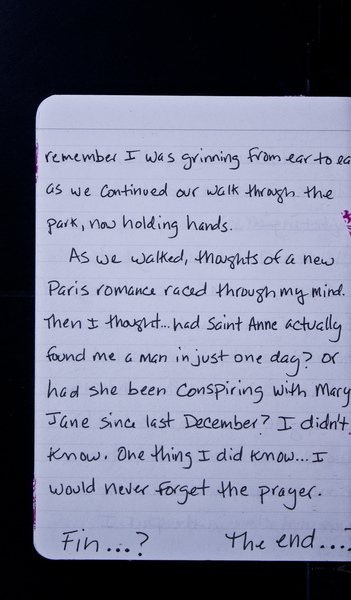 remember I was grinning from ear to ea
as we continued our walk through the
park, now holding hands.
As we walked, thoughts of a new
Paris romance raced through my mind.
Then I thought... had Saint Anne actually
found me a man in just one day? Or
had she been conspiring with Mary
Jane since last December? I didn't
know. One thing I did know... I
would never forget the prayer.
Fin...? The end...?